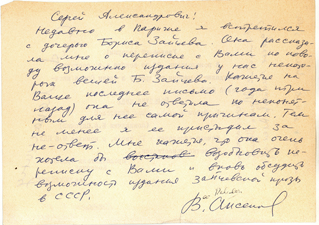 Сергей Александрович!
Недавно в Париже я встретился
с дочерью Бориса Зайцева. Она рассказа-
ла мне о переписке с Вами по пово-
ду возможного издания у нас некот-
рых вещей Б. Зайцева. Кажется на
Ваше последнее письмо (года
назад) она не ответила по непонят-
ным для нее самой причинам. Тем
не менее я ее пристыдил за
не-ответ. Мне кажется, что она очень
хотела бы возобновить пе-
реписку с Вами и вновь обсудить
возможности издания зайцевской прозы
в СССР.
В. Аксенов